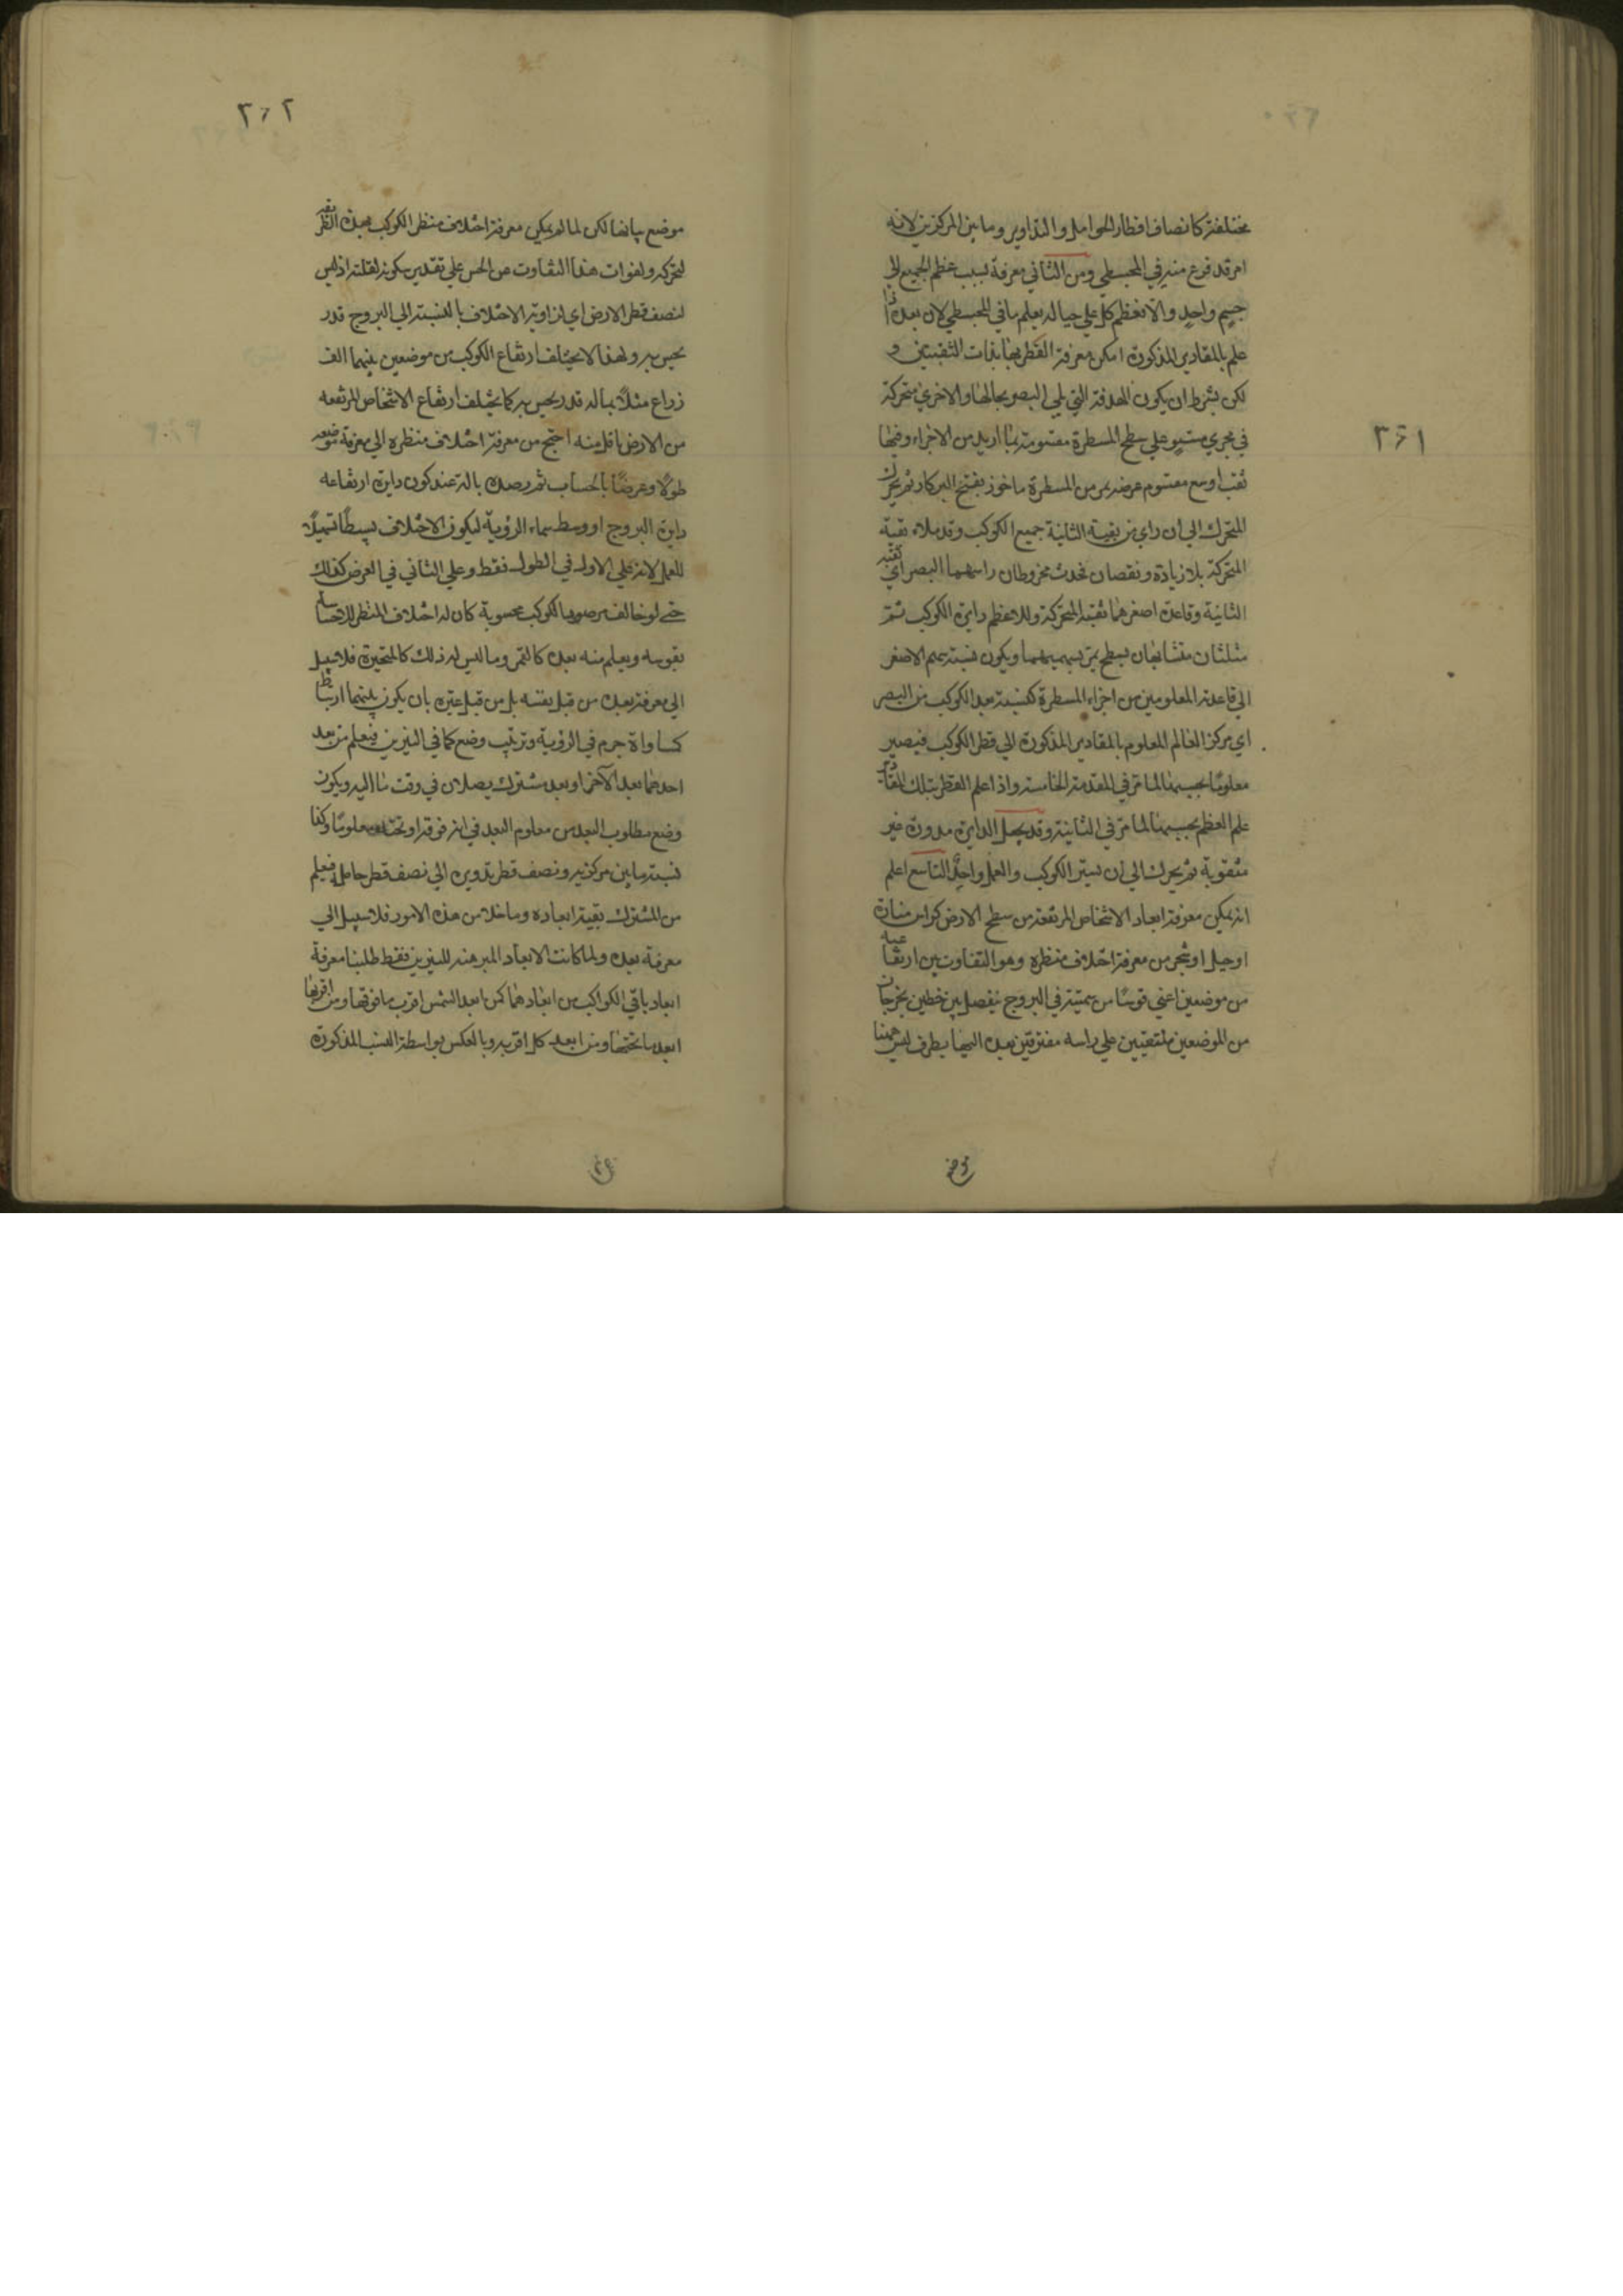 ٣٤١
مختلفة كانصاف اقطار الحوامل والتداوير وما بين المركزين لانه
امر قد فرغ منه في المجسطي ومن الثاني معرفة نسب عظم الجميع الي
جسم واحد والا فعظم كل علي حياله يعلم مافي المجسطي لان بعد اذا
علم بالمقادير المذكورة امكن معرفة القطر بها بذات الثقبتين و
لكن بشرط ان يكون الهدفة التي تلي البصر بحالها والاخري متحركة
في مجري مستو علي سطح المسطرة مقسومة بما اريد من الاجزاء وفيها
ثقب اوسع مقسوم عرضه من المسطرة ماخوذ بفتح البركار ثم يحرك
المتحرك الي ان راي من ثقبة الثانية جميع الكوكب وقد ملاء ثقبة
المتحركة بلا زيادة ونقصان فحدث مخروطان راسهما البصر اي ثقبة
الثانية وقاعدة اصغرهما ثقبة المتحركة وللاعظم دايرة الكوكب ثم
مثلثان متشابهان بسطح يمر بسهميهما ويكون نسبة سهم الاصغر
الي قاعدته المعلومين من اجزاء المسطرة كنسبة بعد الكوكب من البصر
اي مركز العالم المعلوم بالمقادير المذكورة الي قطر الكوكب فيصير
معلوما بحسبها لما مر في المقدمة الخامسة واذا علم القطر بتلك المقادير
علم العظم بحسبها لما مر في الثانية وقد يجعل الدايرة مدورة غير
مثقوبة ثم يحرك الي ان يستر الكوكب والعمل واحد التاسع اعلم
انه يمكن معرفة ابعاد الاشخاص المرتفعة من سطح الارض كراس منارة
او جبل او شجر من معرفة اختلاف منظره وهو التفاوت بين ارتفاعيه
من موضعين اعني قوسا من سمتيته في البروج يفصل بين خطين يخرجان
من الموضعين ملتقيين علي راسه مفترقين بعده اليها بطرف ليس ههنا
موضع
٣٤٢
موضع بيانها لكن لما لم يمكن معرفة اختلاف منظر الكوكب بهذه الطريقة
لتحركه ولفوات هذا التفاوت عن الحس علي تقدير سكونه لقلته اذ ليس
لنصف قطر الارض اي لزاوية الاختلاف بالنسبة الي البروج قدر
يحس به ولهذا لا يختلف ارتفاع الكوكب من موضعين بينهما الف
ذراع مثلا بماله قدر يحس به كما يختلف ارتفاع الاشخاص المرتفعه
من الارض باقل منه احتج من معرفة اختلاف منظره الي معرفة موضعه
طولا وعرضا بالحساب ثم رصده بالة عند كون دايرة ارتفاعه
دايرة البروج او وسط سماء الرؤية ليكون الاختلاف بسيطا تسهيلا
للعمل لانه علي الاول في الطول فقط وعلي الثاني في العرض كذلك
حتي لو خالف مرصود الكوكب محسوبه كان له اختلاف المنظر للاحساس
بقوسه ويعلم منه بعده كالقمر وما ليس له ذلك كالمتحيرة فلا سبيل
الي معرفة بعده من قبل نفسه بل من قبل غيره بان يكون بينهما ارتباط
كمساواة جرم في الرؤية وترتيب وضع كما في النيرين فيعلم من بعد
احدهما بعد الآخر او بعد مشترك يصلان في وقت ما اليه ويكون
وضع مطلوب البعد من معلوم البعد في انه فوقه او تحته معلوما وكذا
نسبة ما بين مركزيه ونصف قطر تدويره الي نصف قطر حامله فيعلم
من المشترك بقية ابعاده وما خلا من هذه الامور فلا سبيل الي
معرفة بعده ولما كانت الابعاد المبرهنة للنيرين فقط طلبنا معرفة
ابعاد باقي الكواكب من ابعادهما كمن ابعد الشمس اقرب ما فوقها ومن اقربها
ابعد ما تحتها ومن ابعد كل اقربه وبالعكس بواسطة النسب المذكورة